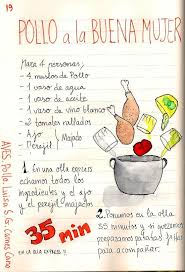 19
POLLO a la BUENA MUJER
Para 4 personas;
- 4 muslos de Pollo
- 1 vaso de agua
- 1 vaso de aceite
- 1 vaso de vino blanco
- 2 tomates rallados
- Ajo
- Perejil
Majado
1. En una olla express
echamos todos los
ingredientes y el ajo
y el perejil majados
35 min
EN LA OLLA EXPRESS !!
2. Ponemos en la olla
35 minutos y si queremos
preparamos patatas fritas
para acompañar.
APES Pollo. Luisa S G.